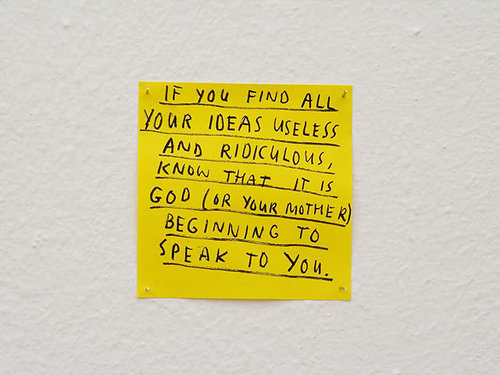 IF YOU FIND ALL
YOUR IDEAS USELESS
AND RIDICULOUS,
KNOW THAT IT IS
GOD (OR YOUR MOTHER)
BEGINNING TO
SPEAK TO YOU.